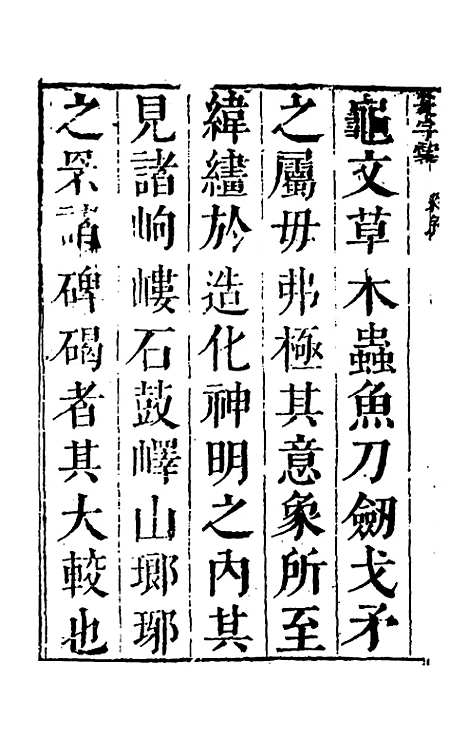 龜文草木蟲魚刀劒戈矛
之屬毋弗極其意象所至
緯繣於造化神明之內其
見諸岣嶁石鼓嶧山瑯琊
之罘諸碑碣者其大較也